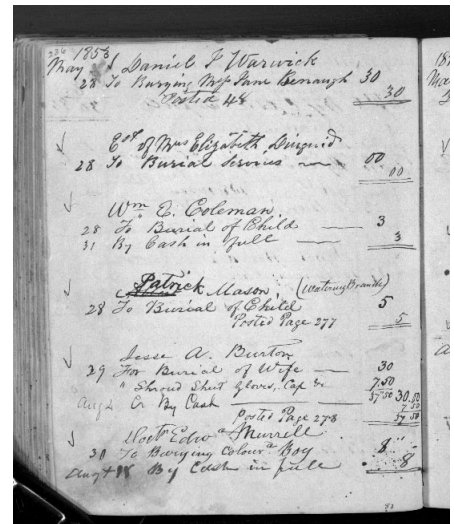 236 1853
May S Daniel F Warwick
28 To Burying Mrs Jane Benaugh 30
Posted 48 30
Est of Mrs Elizabeth Diuguid
28 To Burial Services 00
00
Wm E. Coleman
28 To Burial of Child 3
31 By Cash in full 3
Patrick Mason, (Watering Branch)
28 To Burial of Child 5
Posted Page 277 5
Jesse A. Burton
29 For Burial of Wife 30
" Shroud Sheet Gloves, Cap &c 7.50
Aug 2 Cr By Cash 37 50 30.00
7 50
Posted Page 278 37 50
Doctr Edwd Murrell
30 To Burying Coloured Boy 8
Augt 18 By Cash in full 8